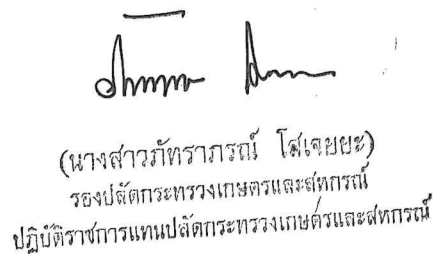 (นางสาวภัทราภรณ์ โสเจยยะ)
รองปลัดกระทรวงเกษตรและสหกรณ์
ปฏิบัติราชการแทนปลัดกระทรวงเกษตรและสหกรณ์